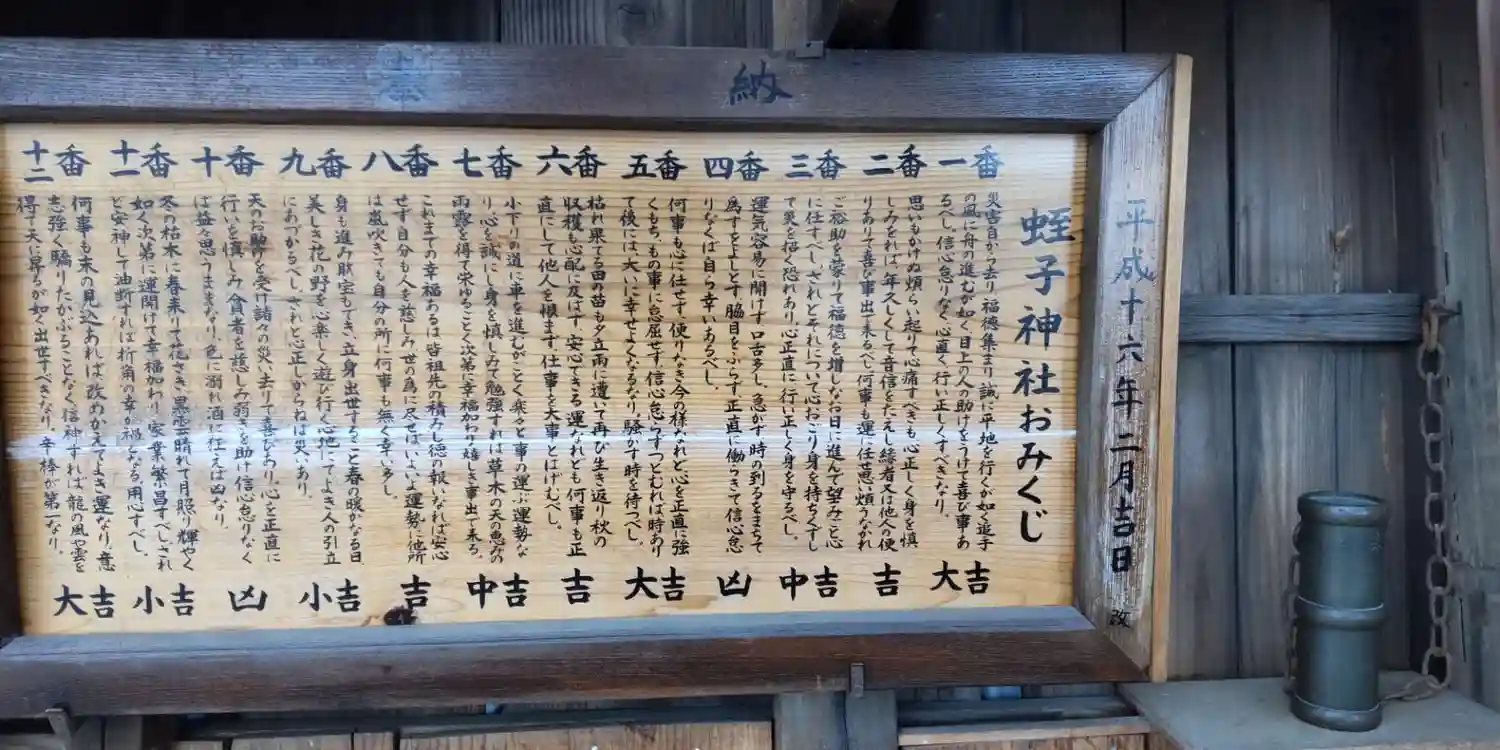 納
平成十六年二月吉日
改
蛭子神社おみくじ
一番
災害自から去り福徳集まり誠に平地を行くが如く追手
の風に舟の進むが如く目上の人の助けをうけて喜び事あ
るべし信心怠りなく心直く行い正しくすべきなり。
大吉
二番
思いもかけぬ煩らい起りて心痛すべきも心正しく身を慎
しみをれば、年久しくして音信をたえし縁者又は他人の便
りありて喜び事出で来るべし何事も運に任せ思い煩うなかれ
吉
三番
ご裕助を蒙りて福徳を増しなお日に進んで望みごと心
に任すべし、されどそれについて心おごり身を持ちくずし
て災を招く恐れあり心正直に行い正しく身を守るべし。
中吉
四番
運気容易に開けず口舌多し、急がず時の到るをまちて
為すをよしとす、脇目をふらず正直に働らきて信心怠
りなくば自ら幸いあるべし。
凶
五番
何事も心に任せず、便りなき今の様なれど心を正直に強
くもち、もの事に怠屈せず、信心怠らずつとむれば時あり
て後には大いに幸せよくなるなり、騒がず時を待つべし。
大吉
六番
枯れ果てる田の苗も夕立雨に遭いて再び生き返り秋の
収穫も心配に及ばず、安心できる運なれども何事も正
直にして他人を恨まず、仕事を大事とはげむべし。
吉
七番
小下りの道に車を進むがごとく楽々と事の運ぶ運勢な
り、心を誠にし身を慎しみて勉強すれば草木の天の恵みの
雨露を得て栄ゆるごとく次第に幸福加わり嬉しき事出で来る。
中吉
八番
これまでの幸福あるは皆祖先の積みし徳の報いなれば安心
せず自分も人を慈しみ世の為に尽せばいよいよ運勢に他所
は嵐吹きても自分の所に何事も無く幸い多し。
吉
九番
身も進み財宝もでき、立身出世すること春の暖かなる日
美しき花の野を心楽しく遊び行く心地にてよき人の引立
にあづかるべし、されど心正しからねば災いあり。
小吉
十番
天のお助けを受け諸々の災い去りて喜びあり、心を正直に
行いを慎しみ貧者を慈しみ弱きを助け信心怠りなく
ば益々思うままなり、色に溺れ酒に仕えば凶なり。
凶
十一番
冬の枯木に春来りて花さき黒雲晴れて月照り輝やく
如く次第に運開けて幸福加わり、家業繁昌すべし、され
ど安神して油断すれば折角の幸が禍となる、用心すべし。
小吉
十二番
何事も末の見込あれば、改めかえてよき運なり、意
志強く驕りたかぶることなく信神すれば、龍の風や雲を
得て天に昇るが如く出世すべきなり、辛棒が第一なり。
大吉